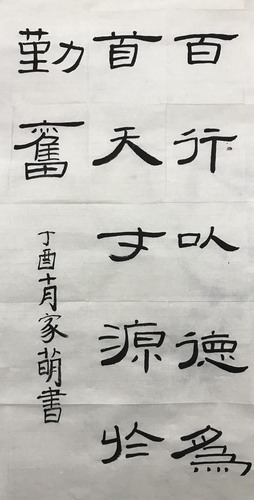 百行以德為
首天才源於
勤奮
丁酉十月家萌書